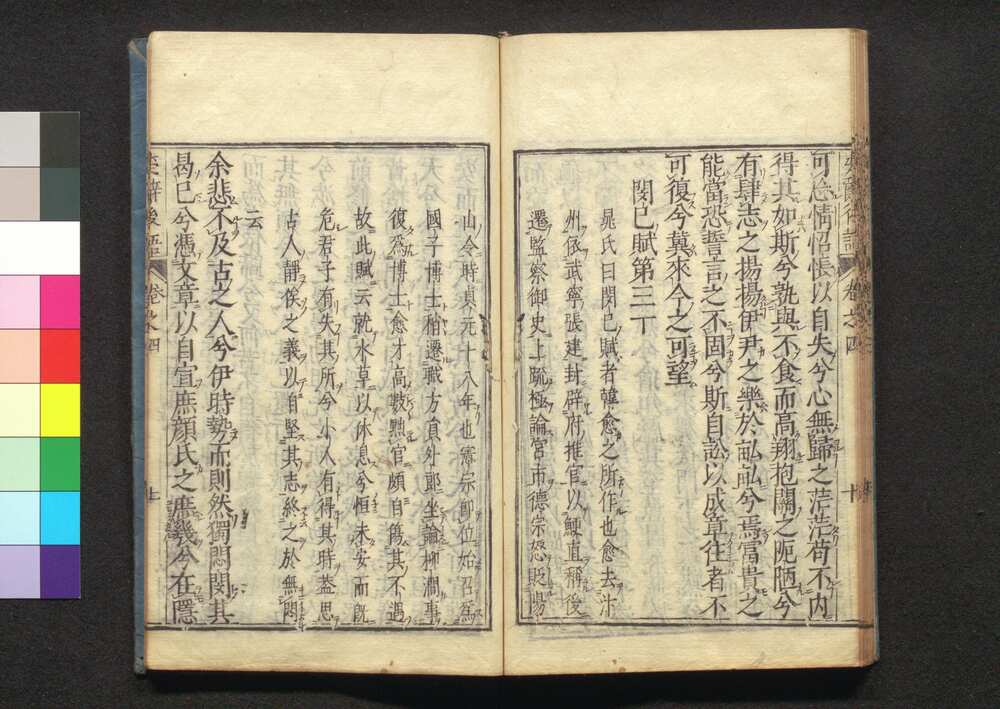 可怠情怊悵以自失兮心無歸之茫茫苟不内
得其如斯兮孰與不食而高翔抱關之阨陋兮
有肆志之揚揚伊尹之樂於畎畝兮焉富貴之
能當恐誓言之不固兮斯自訟以成章往者不
可復兮冀來今之可望
閔己賦第三丁
晁氏曰閔己賦者韓愈之所作也愈去汴
州依武寧張建封辟府推官以鯁直稱後
遷監察御史上疏極論宮市德宗怒貶陽
山令時貞元十八年也憲宗即位始召爲
國子博士稍遷職方員外郎坐論柳澗事
復爲博士愈才高數黜官頗自傷其不遇
故此賦云就水草以休息兮恒未安而既
危君子有失其所兮小人有得其時葢思
古人靜俟之義以自堅其志終之於無悶
云
余悲不及古之人兮伊時勢而則然獨悶閔其
曷已兮憑文章以自宣庶顏氏之庶幾兮在隱
楚辭後語 卷第四